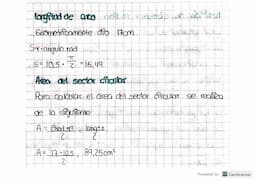 longitud de arco
Geométricamente dio 17cm
S=r·angulo rad
S=10,5 · π/2 = 16,49
Area del sector circular
Para calcular el area del sector circular se realiza
de la siguiente
A = = long·r / 2
A = 17·10,5 / 2 , 89,25cm²
Powered by CamScanner